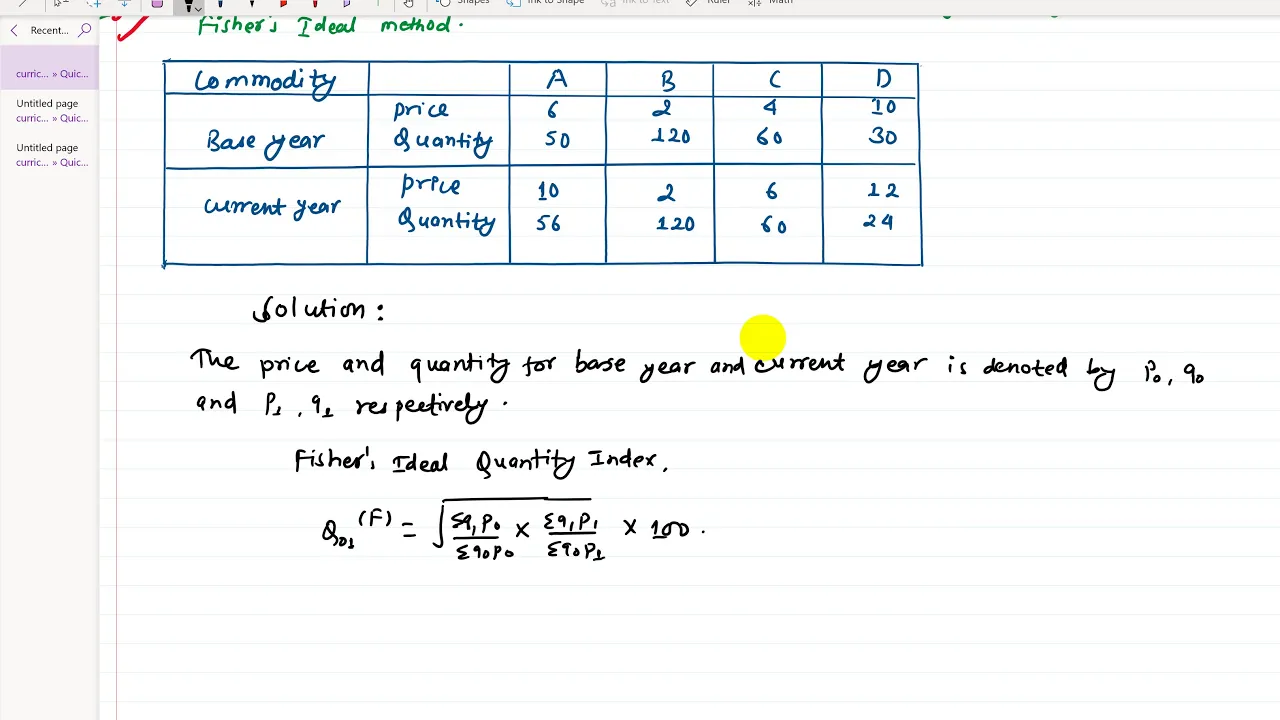 Shapes Ink to Shape Ink to Text Ruler Math
Recent...
Fisher's Ideal method.
curric... » Quic...
Untitled page
curric... » Quic...
Untitled page
curric... » Quic...
Commodity A B C D
Base year price 6 2 4 10
Quantity 50 120 60 30
current year price 10 2 6 12
Quantity 56 120 60 24
Solution:
The price and quantity for base year and current year is denoted by P₀, q₀
and P₁, q₁ respectively.
Fisher's Ideal Quantity Index,
Q₀₁^(F) = √(Σq₁P₀/Σq₀P₀ × Σq₁P₁/Σq₀P₁) × 100.